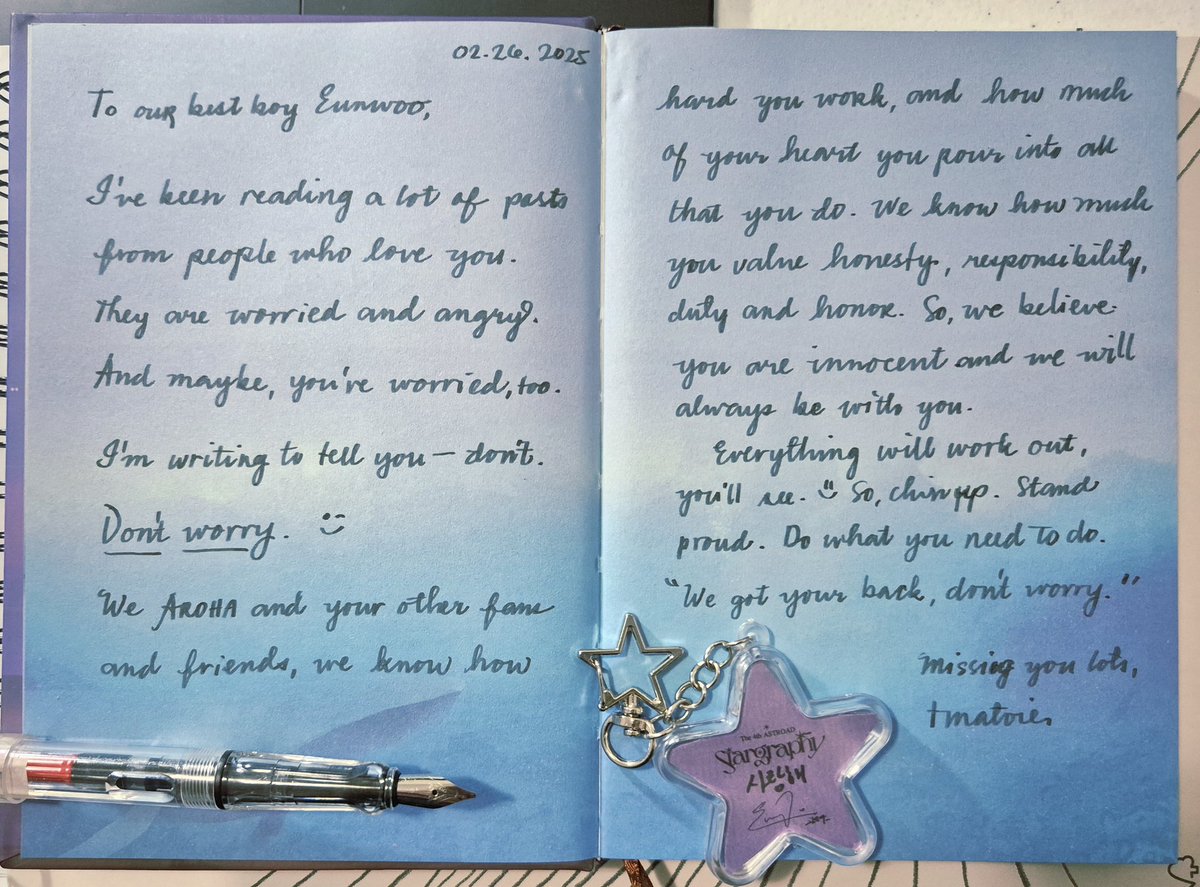 02.26.2025
To our best boy Eunwoo,
I've been reading a lot of posts
from people who love you.
They are worried and angry.
And maybe, you're worried, too.
I'm writing to tell you — don't.
Don't worry. :)
We AROHA and your other fans
and friends, we know how
hard you work, and how much
of your heart you pour into all
that you do. We know how much
you value honesty, responsibility,
duty and honor. So, we believe
you are innocent and we will
always be with you.
Everything will work out,
you'll see. :) So, chin up. Stand
proud. Do what you need to do.
"We got your back, don't worry."
Missing you lots,
The 4th ASTROAD
Stargraphy